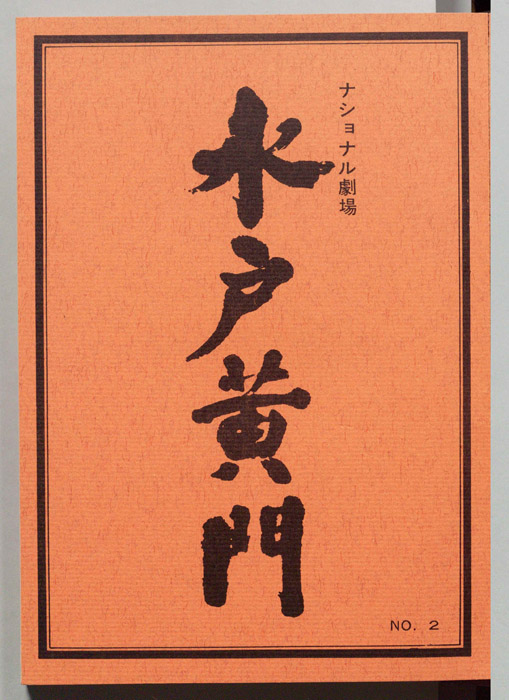 ナショナル劇場
水戸黄門
NO. 2